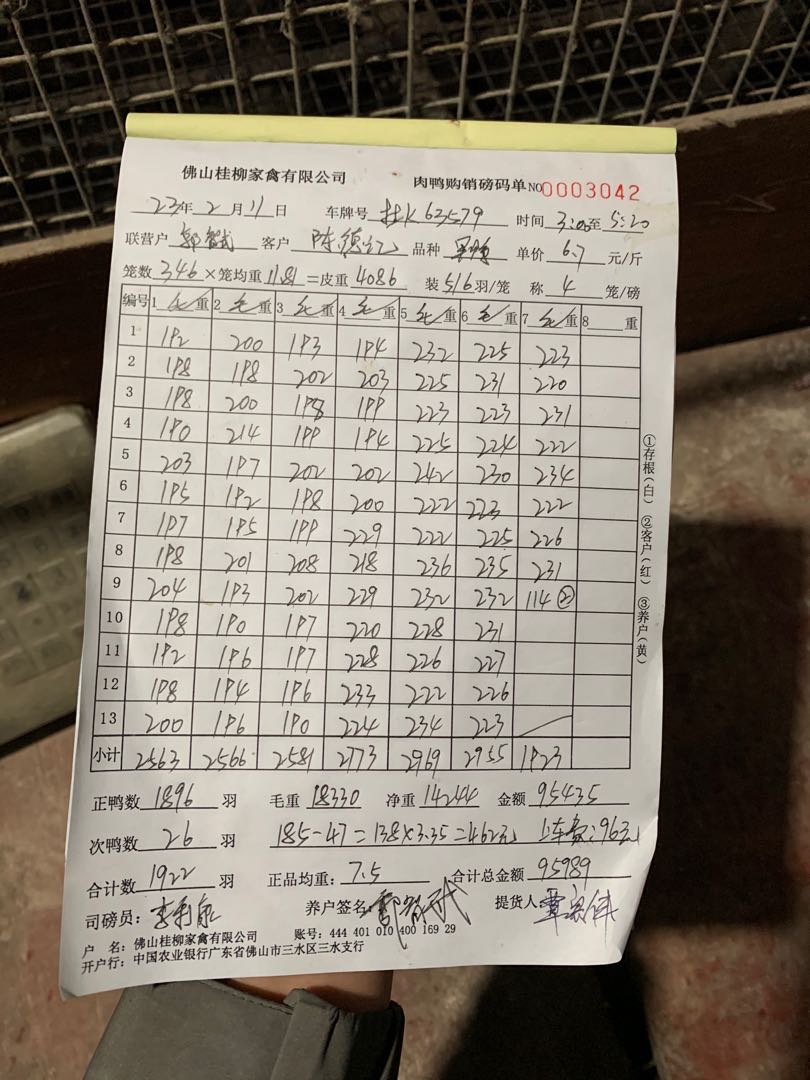 佛山桂柳家禽有限公司 肉鸭购销磅码单 NO 0003042
23年 2 月 11 日 车牌号 K63579 时间 3:00 至 5:20
联营户 客户 陈德记 品种 单价 6.7 元/斤
笼数 346 ×笼均重 11.81 =皮重 4086 装 5/6 羽/笼 称 4 笼/磅
编号 1 毛重 2 毛重 3 毛重 4 毛重 5 毛重 6 毛重 7 毛重 8 重
1 192 200 193 194 232 225 223
2 198 198 202 203 225 231 220
3 198 200 198 199 223 223 231
4 190 214 199 194 225 224 222
5 203 197 202 202 242 230 234
6 195 192 198 200 222 223 222
7 197 195 199 229 222 225 226
8 198 201 208 218 236 235 231
9 204 193 202 229 232 232 114 ②
10 198 190 197 220 228 231
11 192 196 197 228 226 227
12 198 194 196 233 222 226
13 200 196 190 224 234 223
小计 2563 2566 2581 2773 2969 2955 1923
正鸭数 1896 羽 毛重 18330 净重 14244 金额 95435
次鸭数 26 羽 185-47=138×3.35=462元 上车费:96元
合计数 1922 羽 正品均重: 7.5 合计总金额 95989
司磅员: 养户签名 提货人:
户 名: 佛山桂柳家禽有限公司 账号: 444 401 010 400 169 29
开户行: 中国农业银行广东省佛山市三水区三水支行
①存根(白) ②客户(红) ③养户(黄)